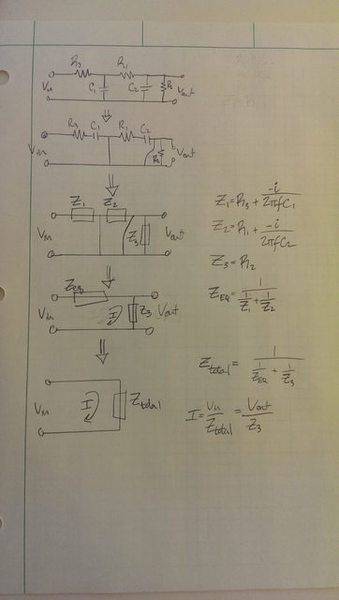 R3 R1
Vin C1 C2 R2 Vout
R3 C1 R1 C2
Vin R2 Vout
Z1 Z2
Vin Z3 Vout
Z1 = R3 + -i/2πfC1
Z2 = R1 + -i/2πfC2
Z3 = R2
ZEQ = 1/(1/Z1 + 1/Z2)
ZEQ
Vin I Z3 Vout
Ztotal = 1/(1/ZEQ + 1/Z3)
Vin I Ztotal
I = Vin/Ztotal = Vout/Z3